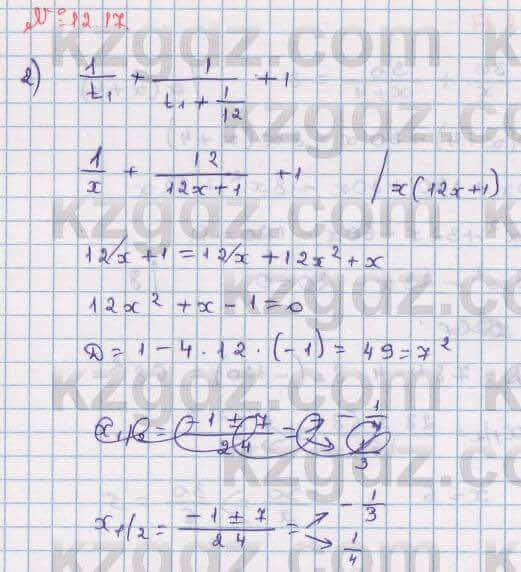 № 12.17.
2) 1/t₁ + 1/(t₁ + 1/12) + 1
1/x + 12/(12x+1) + 1 / x(12x+1)
12x + 1 = 12x + 12x² + x
12x² + x - 1 = 0
D = 1 - 4 · 12 · (-1) = 49 = 7²
x₁/₂ = (-1 ± 7)/24 = - 1/4
1/3
x₁/₂ = (-1 ± 7)/24 = ↗ - 1/3
↘ 1/4
kzgdz.com